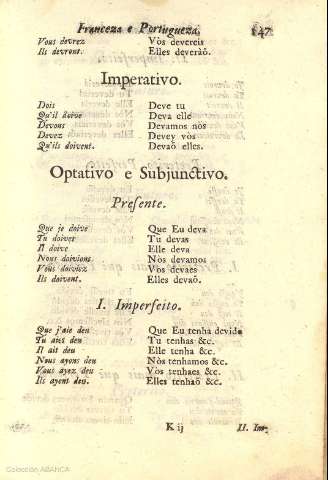 Franceza e Portugueza. 147
Vous devrez Vòs devereis
Ils devront. Elles deveráõ.
Imperativo.
Dois Deve tu
Qu'il doive Deva elle
Devons Devamos nòs
Devez Devey vòs
Qu'ils doivent. Devaõ elles.
Optativo e Subjunctivo.
Presente.
Que je doive Que Eu deva
Tu doives Tu devas
Il doive Elle deva
Nous doivions Nòs devamos
Vous doiviez Vòs devaes
Ils doivent. Elles devaõ.
I. Imperfeito.
Que j'aie deu Que Eu tenha devido
Tu aies deu Tu tenhas &c.
Il ait deu Elle tenha &c.
Nous ayons deu Nòs tenhamos &c.
Vous ayez deu Vòs tenhaes &c.
Ils ayent deu. Elles tenhaõ &c.
K ij II. Im-
Colección ABANCA